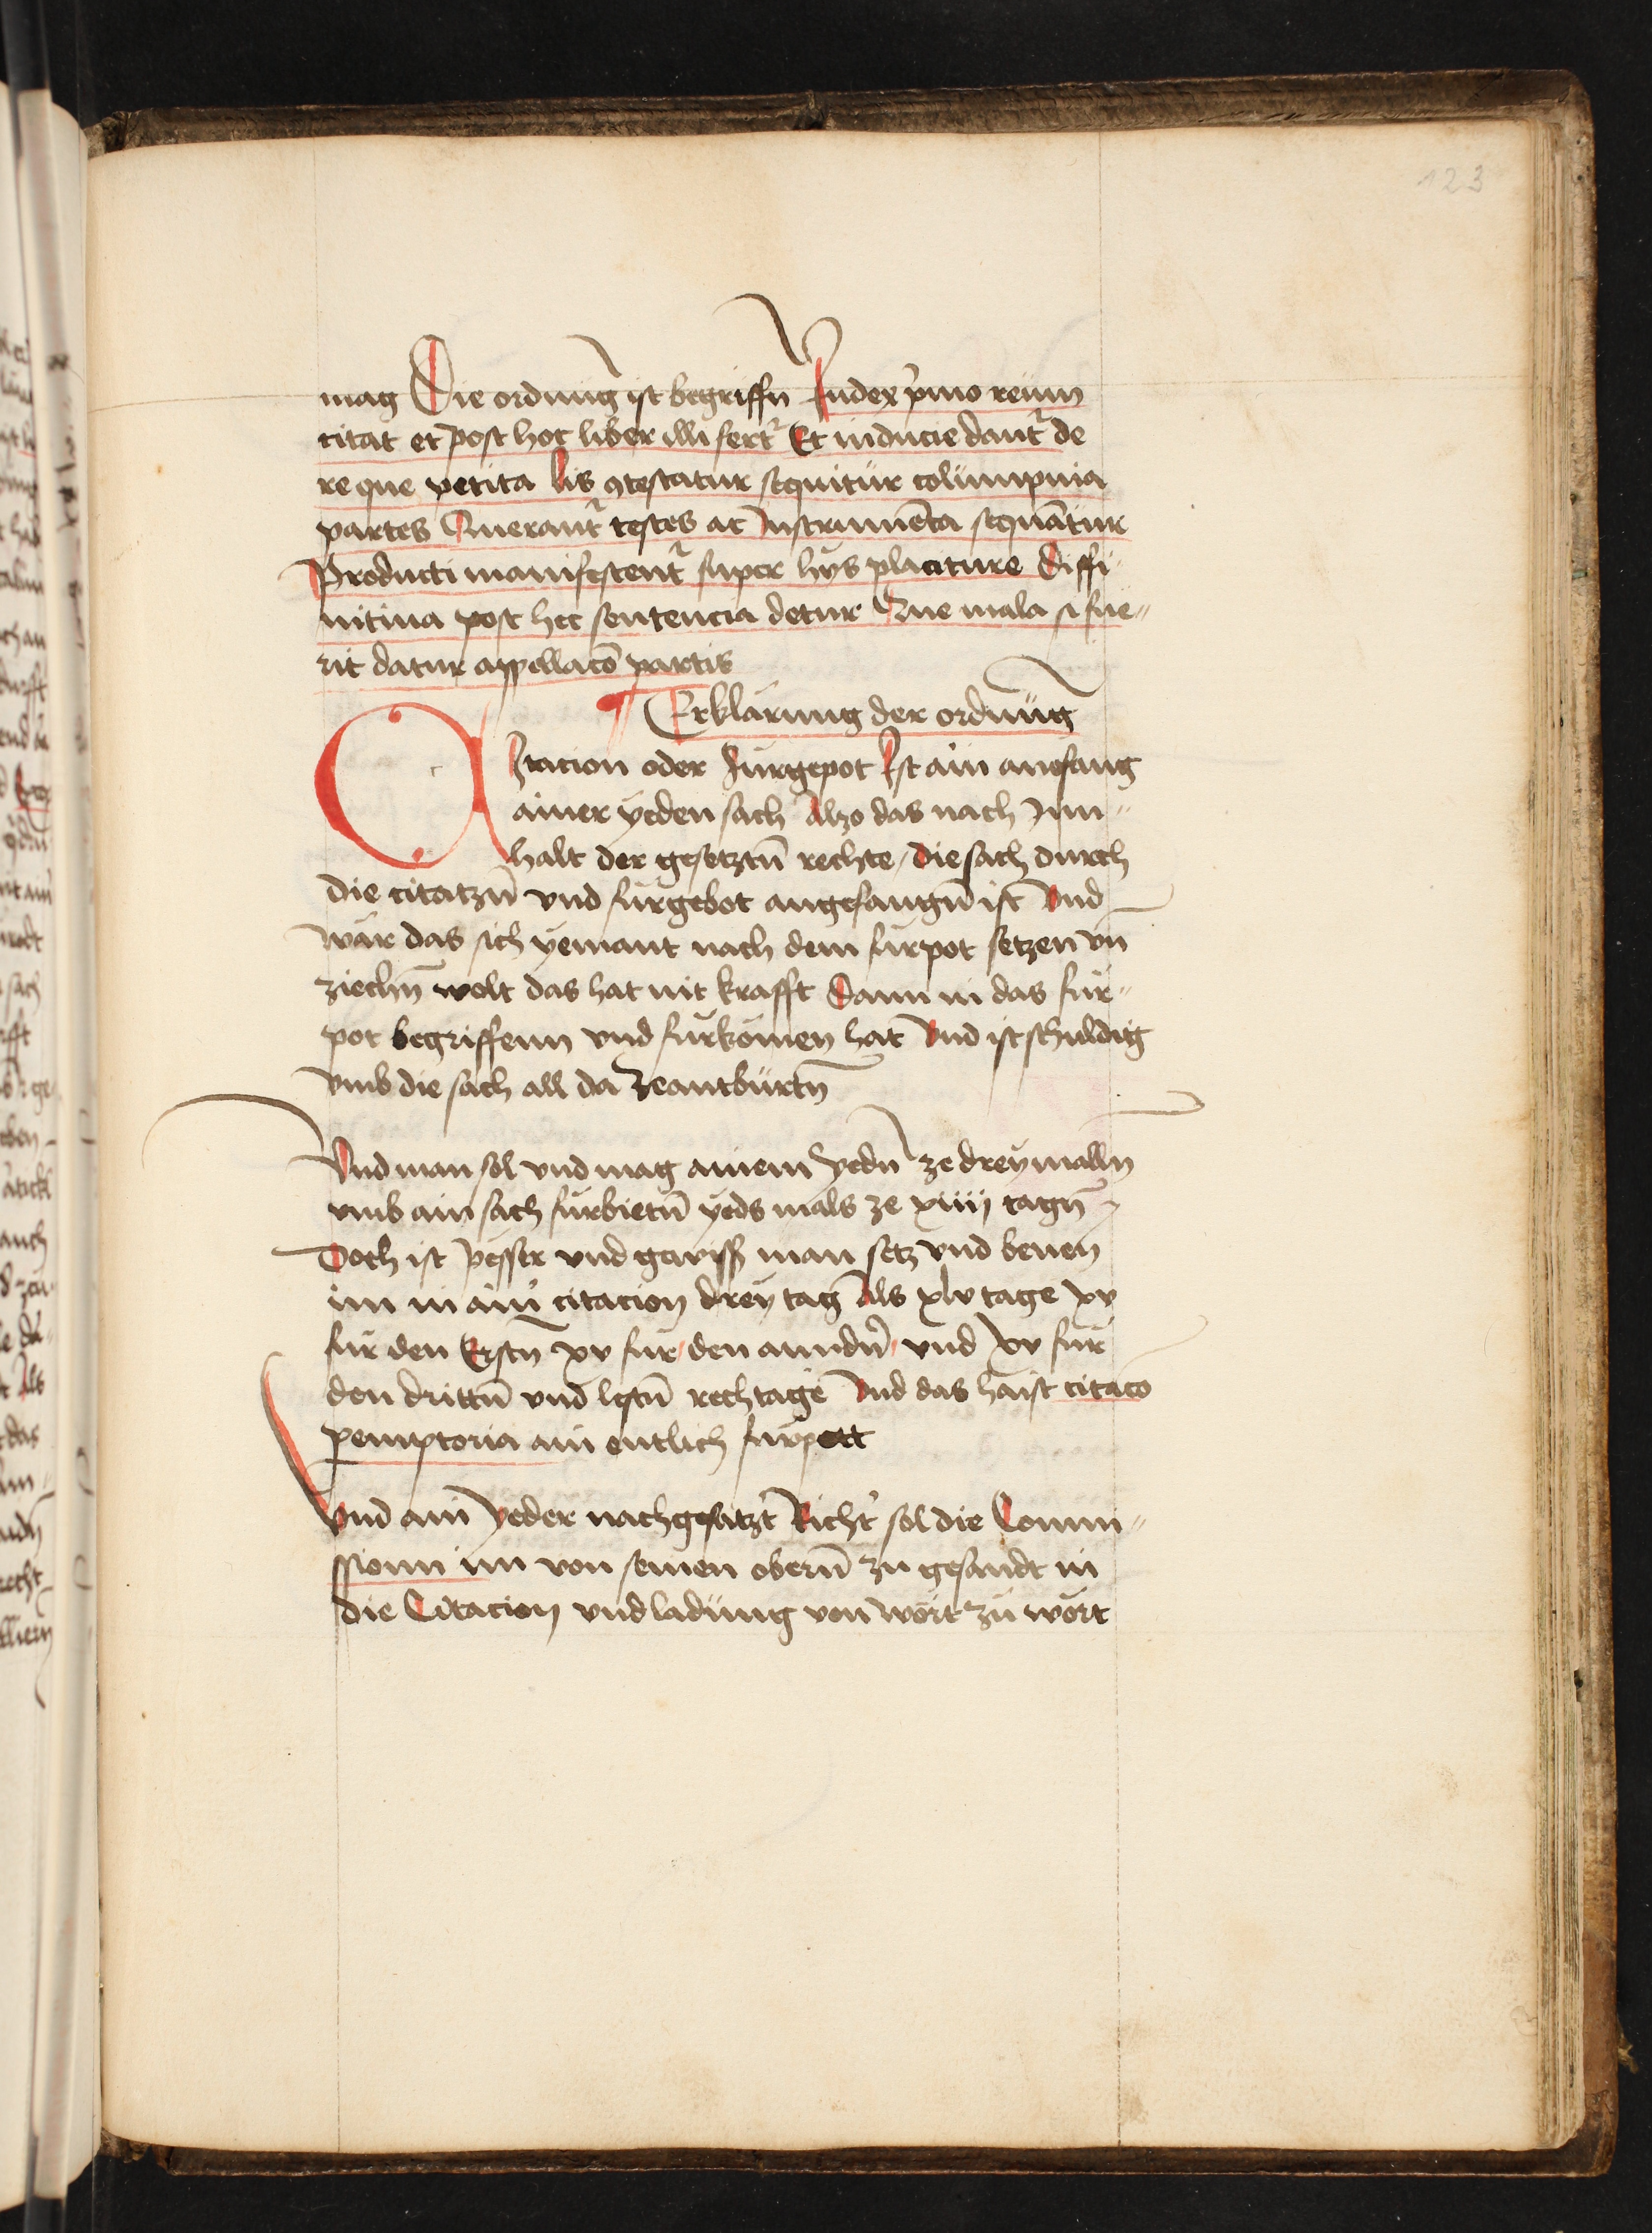 123
mag Die ordnung ist begriffn̄ Iudex p̍mo reum
citat et post hoc liber illi fert᷑ Et inducie dant᷑ de
re que petita Lis ꝯtestatur sequitur columpnia
partes Querant᷑ testes ac Instrumēta sequātur
Producti manifestent᷑ super hys placiture Diffi
nitiua post hec sentencia detur Que mala si fue„
rit datur appellacō partis
¶ Erklärung der ordnung
CItacion oder Fürgepot Ist ain anefang
ainer yeden sach Alzo das nach Inn„
halt der gesetztn̄ rechte / die sach durch
die citatzn̄ vnd fürgebot angefangn̄ ist Vnd
wär das sich yemant nach dem fürpot setzen vn̄
ziechn̄ wolt das hat nit krafft Dann in das für„
pot begriffenn vnd fürkomen hat Vnd ist schuldig
vmb die sach all da Zeantbürtn̄
Vnd man sol vnd mag ainem Yedn̄ ze dreymalln
vmb ain sach fürbietn̄ yeds mals ze xiiij tagn̄
Doch ist pesser vnd gewiss man setz vnd benen
im in ain̍ citacion drey tag Als xlv tage xv
für den Erstn̄ xv für den anndn̍ vnd xv für
den drittn̄ vnd lestn̄ rechtage Vnd das haist citacō
ꝑemptoria ain entlich fürpott
Vnd ain Yeder nachgesatzt Richt̍ sol die Commi„
ssionn im von seinen obern̄ zu gesandt in
die Citacion vnd ladung von wort zu wort